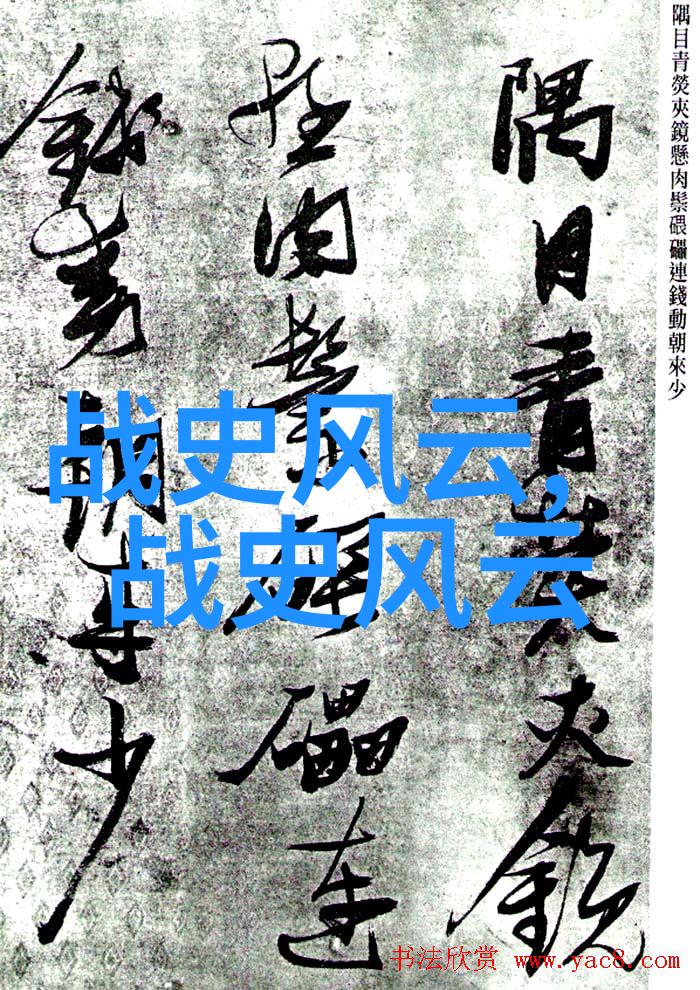 隅目青熒夾鏡懸肉鬃碨礧連錢動朝來少
隅目青熒夾鏡
懸肉鬃碨礧連
錢動朝來少
战史风云,
战史风云
书法欣赏 www.yac8.com